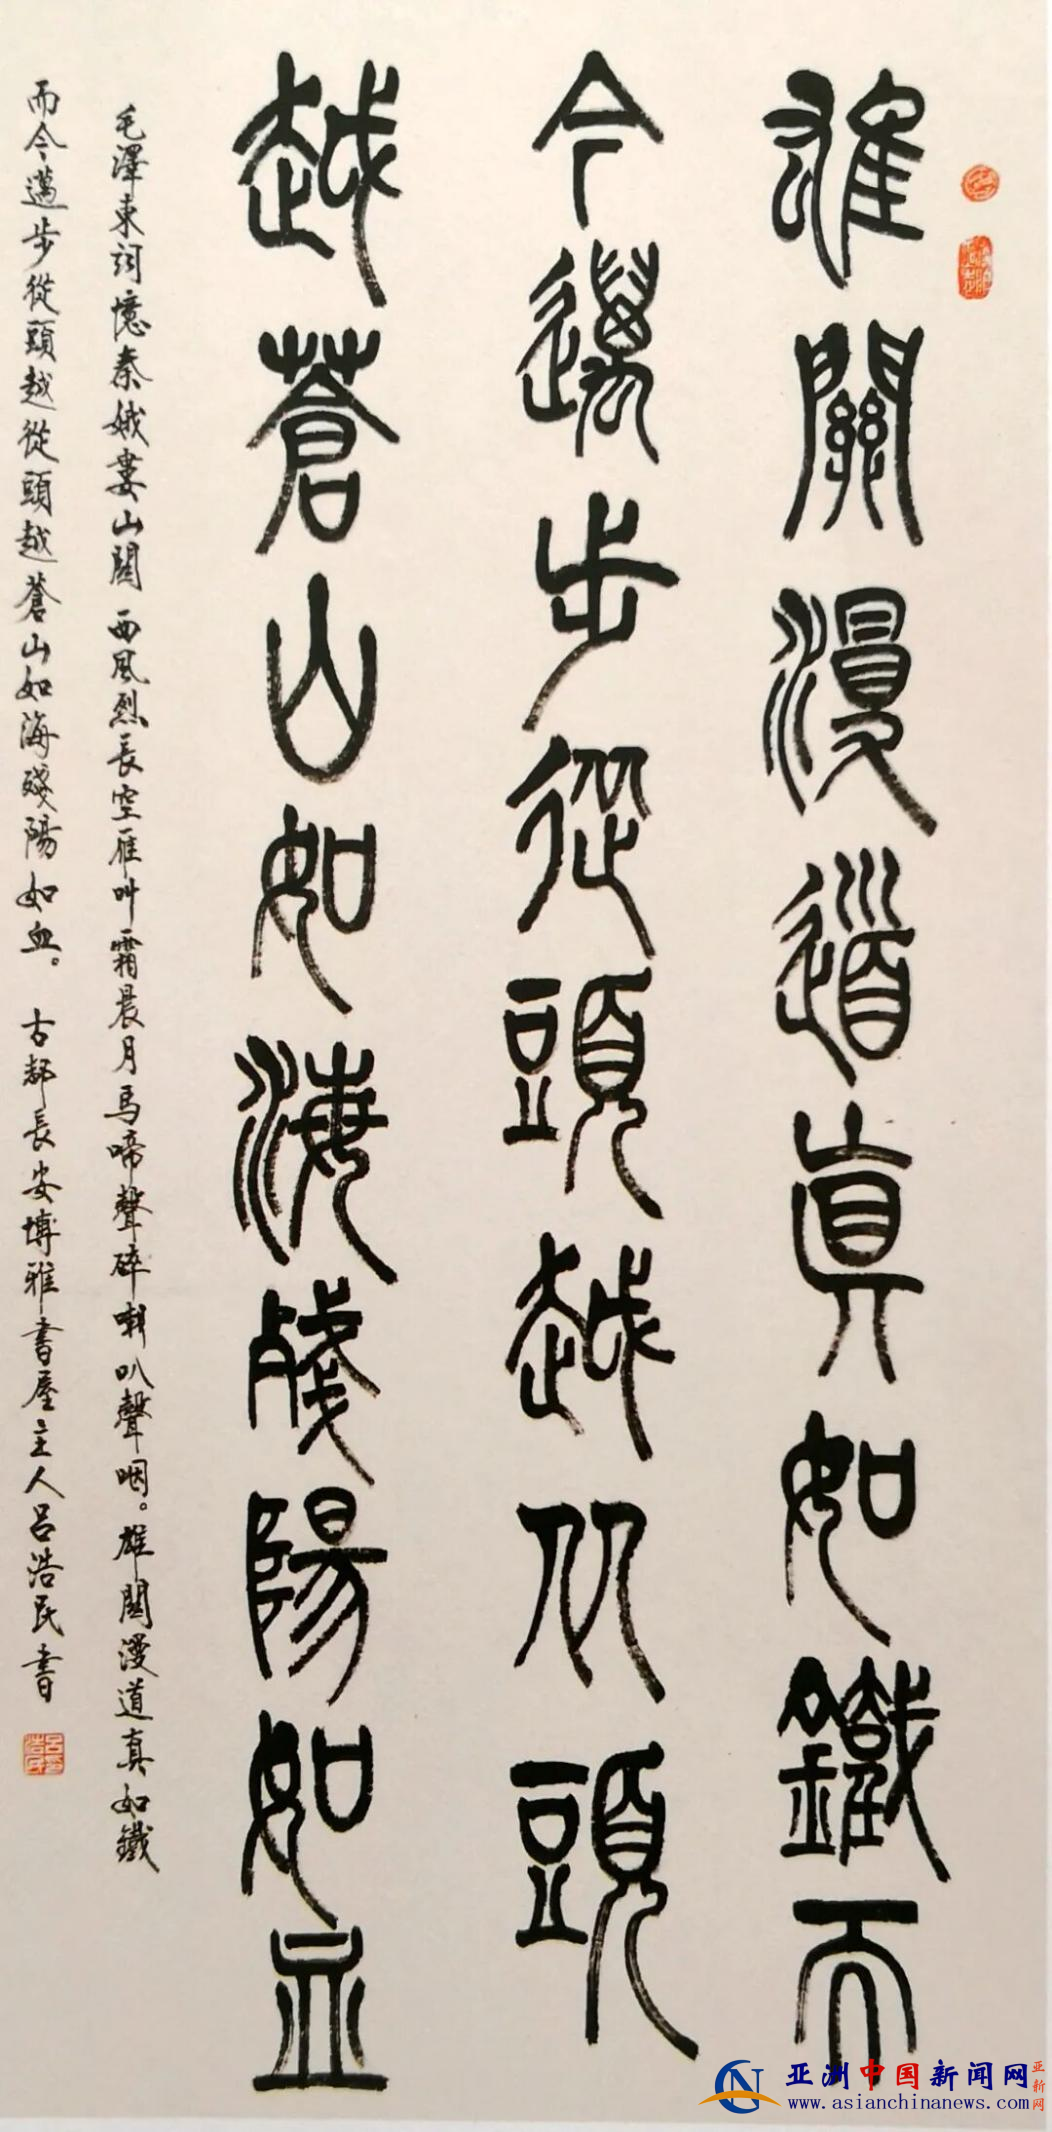 雄關漫道真如鐵而
今邁步從頭越从頭
越蒼山如海殘陽如血
毛澤東詞憶秦娥婁山關 西風烈長空雁叫霜晨月馬啼聲碎喇叭聲咽。雄關漫道真如鐵
而今邁步從頭越從頭越蒼山如海殘陽如血。 古都長安博雅書屋主人呂浩民書
亚洲中国新闻网
亚新网
www.asianchinanews.com